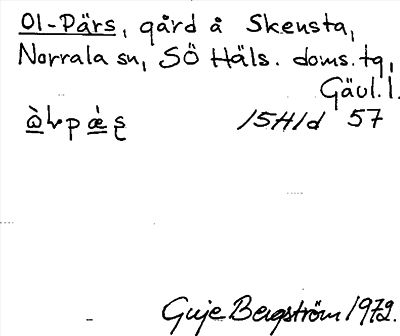 Ol-Pärs, gård å Skensta,
Norrala sn, SÖ Häls. doms. tg,
Gävl. l.
15H1d 57
Guje Bergström 1972.